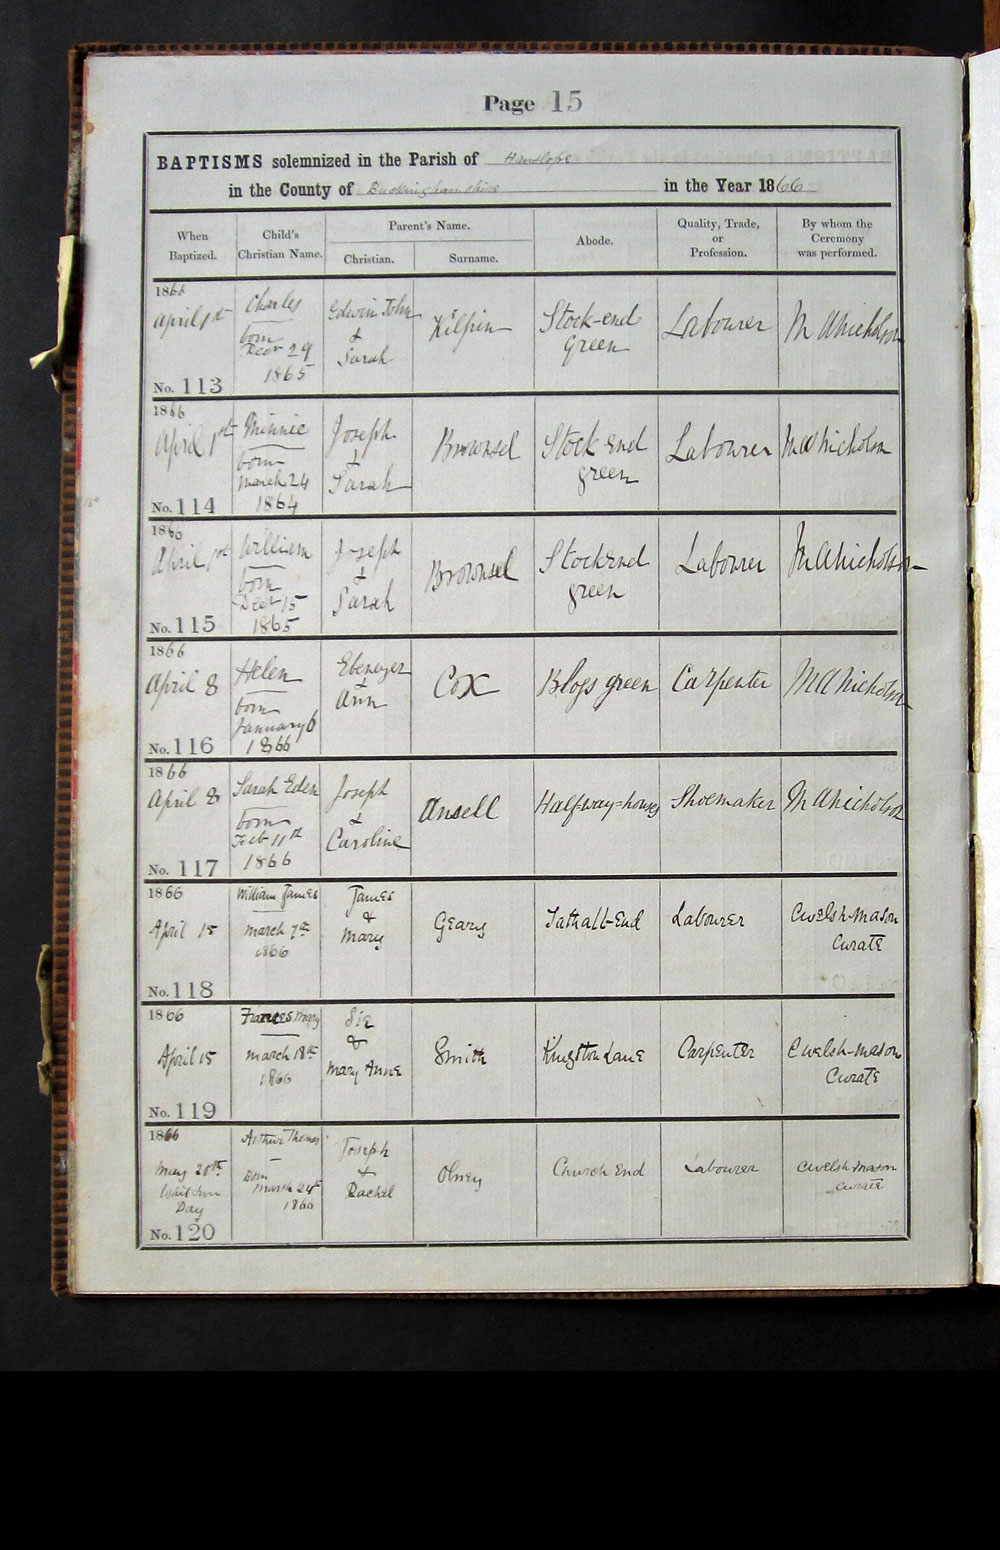 Page 15
BAPTISMS solemnized in the Parish of Hanslope
in the County of Buckinghamshire in the Year 1866
When Baptized.
Child's Christian Name.
Parent's Name.
Christian.
Surname.
Abode.
Quality, Trade, or Profession.
By whom the Ceremony was performed.
1866
April 1st
No. 113
Charles
born
Decr 29
1865
Edwin John
&
Sarah
Kilpin
Stock-end
Green
Labourer
M A Nicholson
1866
April 1st
No. 114
Minnie
born
March 24
1864
Joseph
&
Sarah
Brownsel
Stock end
green
Labourer
M A Nicholson
1866
April 1st
No. 115
William
born
Decr 15
1865
Joseph
&
Sarah
Brownsel
Stockend
green
Labourer
M A Nicholson
1866
April 8
No. 116
Helen
born
January 6
1866
Ebenezer
&
Ann
Cox
Blogs green
Carpenter
M A Nicholson
1866
April 8
No. 117
Sarah Eden
born
Feb 11th
1866
Joseph
&
Caroline
Ansell
Half-way-houses
Shoemaker
M A Nicholson
1866
April 15
No. 118
William James
March 7th
1866
James
&
Mary
Geary
Tathall-End
Labourer
C Welsh-Mason
Curate
1866
April 15
No. 119
Frances Mary
March 18th
1866
&
Mary Anne
Smith
Kingston Lane
Carpenter
C Welsh-Mason
Curate
1866
May 20th
Whitsun
Day
No. 120
Arthur Thomas
Born
March 24th
1866
Joseph
&
Rachel
Olney
Church End
Labourer
C Welsh Mason
Curate